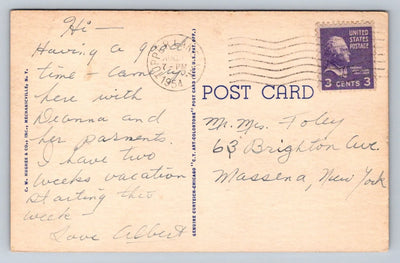 Hi —
Having a good
time - Came up
here with
Deanna and
her parnents.
I have two
weeks vacation
starting this
week
Love Albert
C. W. HUGHES & CO., INC., MECHANICVILLE, N. Y.
GENUINE CURTEICH-CHICAGO "C.T. ART-COLORTONE" POST CARD (REG. U.S. PAT. OFF.)
1954
UNITED STATES
POSTAGE
3 CENTS 3
POST CARD
Mr. Mrs. Foley
63 Brighton Ave.
Massena, New York